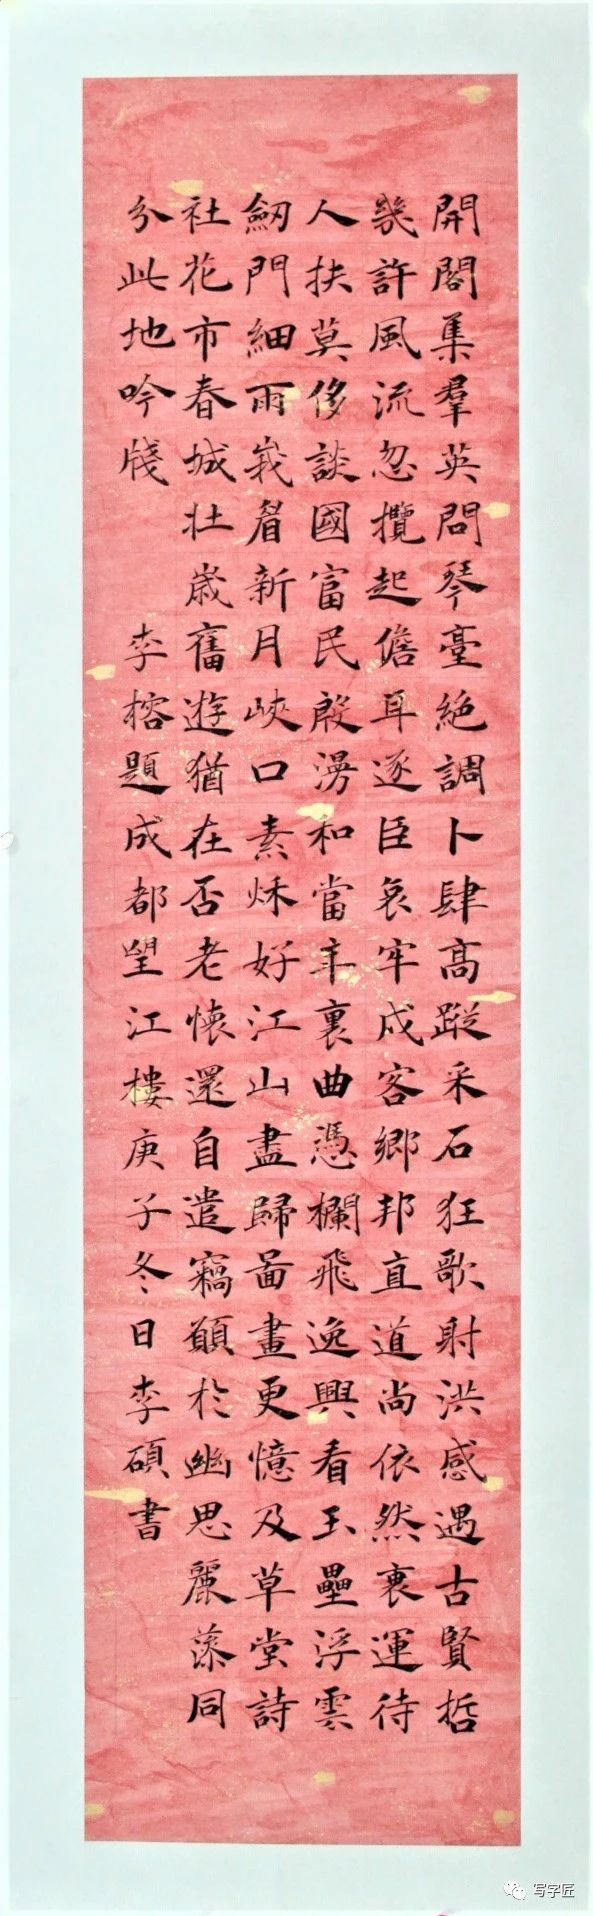 開閣集羣英問琴臺絕調卜肆高蹤采石狂歌射洪感遇古賢哲
幾許風流忽攬起儋耳逐臣哀牢戍客鄉邦直道尚依然衰運待
人扶莫侈談國富民殷漫和當年裏曲憑欄飛逸興看玉壘浮雲
劒門細雨峩眉新月峽口素秌好江山盡歸畵畫更憶及草堂詩
社花市春城壯歲舊遊猶在否老懷還自遣竊願於幽思麗藻同
分此地吟牋 李榕題成都望江樓庚子冬日李碩書
写字匠